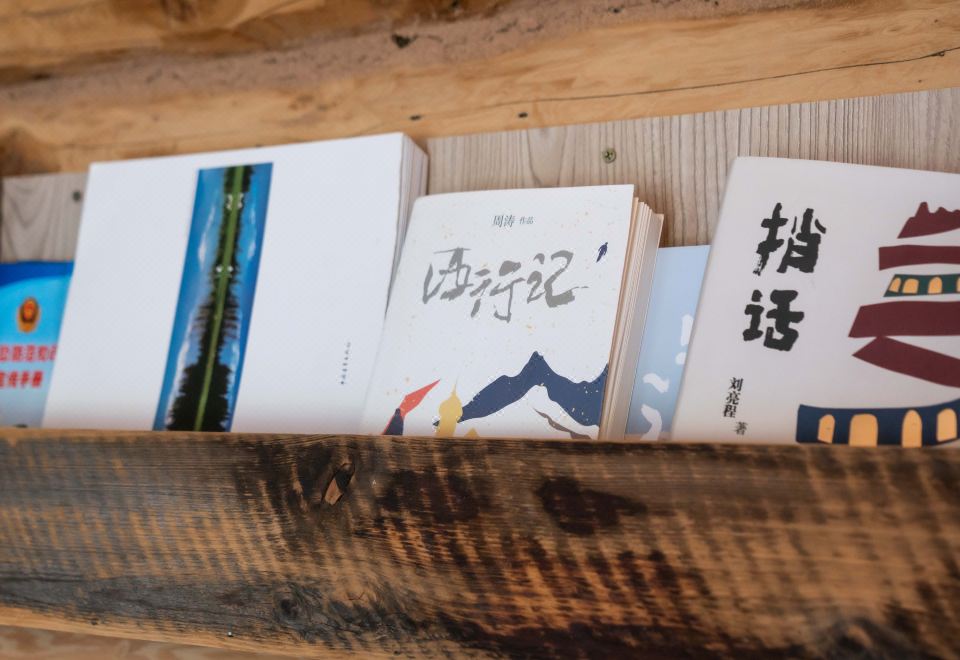 宣传手册
周涛 作品
西行记
捎话
刘亮程 著